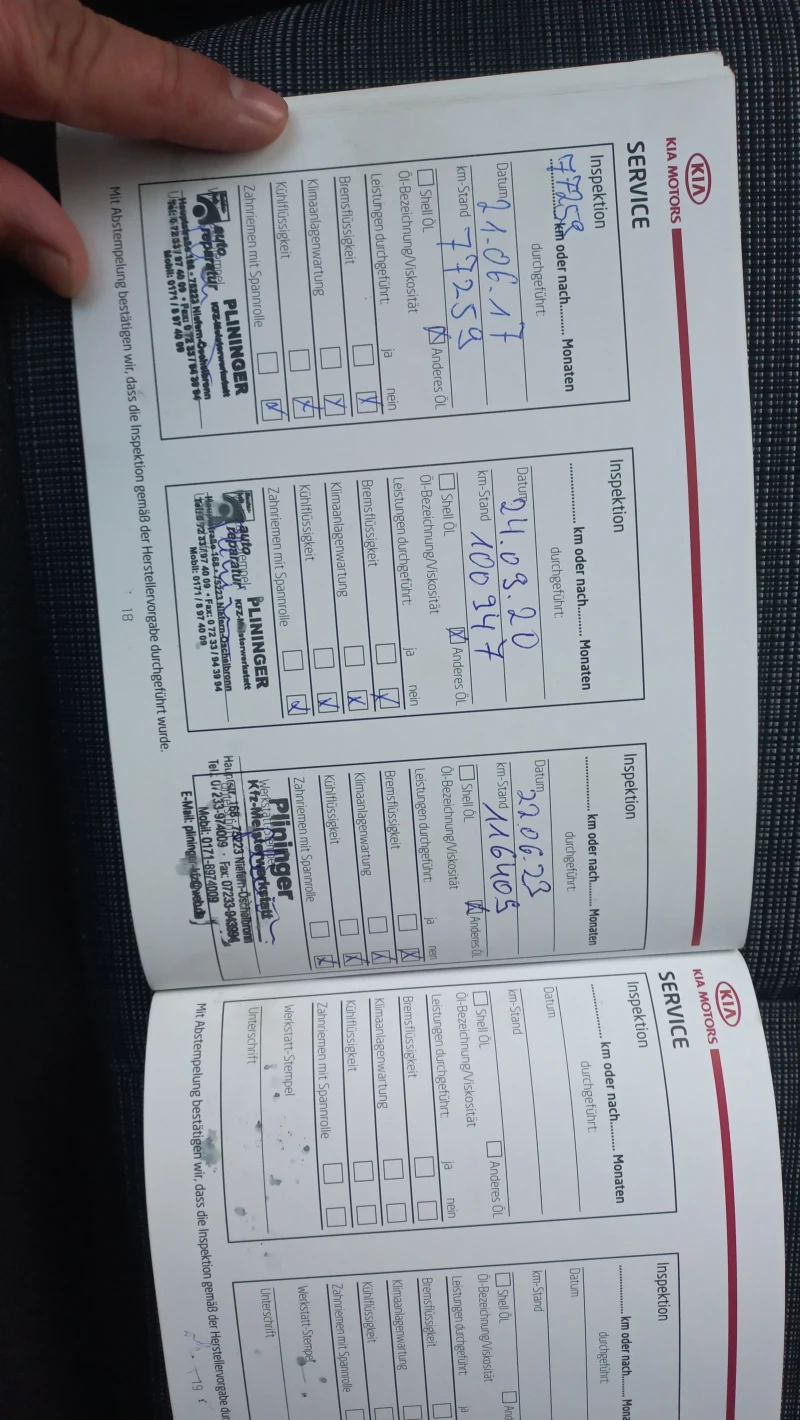 KIA
KIA MOTORS
SERVICE
Inspektion
77259 km oder nach......... Monaten
durchgeführt:
Datum 21.06.17
km-Stand 77259
Öl-Bezeichnung/Viskosität
Shell ÖL
Anderes ÖL
Leistungen durchgeführt:
ja
nein
Bremsflüssigkeit
Klimaanlagenwartung
Kühlflüssigkeit
Zahnriemen mit Spannrolle
auto PLININGER
reparatur KFZ-Meisterwerkstatt
Hauptstraße 168 • 75223 Niefern-Öschelbronn
Tel.: 0 72 33 / 97 40 09 • Fax: 0 72 33 / 94 39 94
Mobil: 0171 / 8 97 40 09
Inspektion
.................. km oder nach......... Monaten
durchgeführt:
Datum 24.09.20
km-Stand 100947
Öl-Bezeichnung/Viskosität
Shell ÖL
Anderes ÖL
Leistungen durchgeführt:
ja
nein
Bremsflüssigkeit
Klimaanlagenwartung
Kühlflüssigkeit
Zahnriemen mit Spannrolle
auto PLININGER
reparatur KFZ-Meisterwerkstatt
Hauptstraße 168 • 75223 Niefern-Öschelbronn
Tel.: 0 72 33 / 97 40 09 • Fax: 0 72 33 / 94 39 94
Mobil: 0171 / 8 97 40 09
Inspektion
.................. km oder nach......... Monaten
durchgeführt:
Datum 22.06.23
km-Stand 116409
Öl-Bezeichnung/Viskosität
Shell ÖL
Anderes ÖL
Leistungen durchgeführt:
ja
nein
Bremsflüssigkeit
Klimaanlagenwartung
Kühlflüssigkeit
Zahnriemen mit Spannrolle
Plininger
Kfz-Meisterwerkstatt
Hauptstr. 168 • 75223 Niefern-Öschelbronn
Tel. 07233-974009 • Fax: 07233-943994
Mobil: 0171-8974009
Mit Abstempelung bestätigen wir, dass die Inspektion gemäß der Herstellervorgabe durchgeführt wurde.
18
KIA
KIA MOTORS
SERVICE
Inspektion
.................. km oder nach......... Monaten
durchgeführt:
Datum
km-Stand
Öl-Bezeichnung/Viskosität
Shell ÖL
Anderes ÖL
Leistungen durchgeführt:
ja
nein
Bremsflüssigkeit
Klimaanlagenwartung
Kühlflüssigkeit
Zahnriemen mit Spannrolle
Werkstatt-Stempel
Unterschrift
Inspektion
.................. km oder nach......... Mon
durchgeführt:
Datum
km-Stand
Öl-Bezeichnung/Viskosität
Shell ÖL
And
Leistungen durchgeführt:
ja
Bremsflüssigkeit
Klimaanlagenwartung
Kühlflüssigkeit
Zahnriemen mit Spannrolle
Werkstatt-Stempel
Unterschrift
Mit Abstempelung bestätigen wir, dass die Inspektion gemäß der Herstellervorgabe dur
19